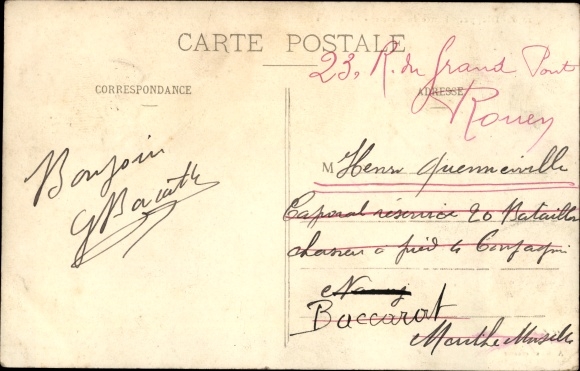 CARTE POSTALE
23, R. du Grand Pont
Rouen
CORRESPONDANCE
ADRESSE
Bonjour
M Henri Quenneville
Caporal réserviste 20 Bataillon
chasseur a pied 6 Compagnie
Nancy
Baccarat
Meurthe Moselle